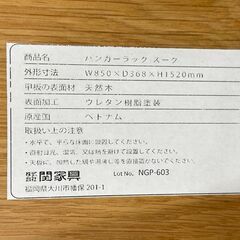 商品名 ハンガーラック スーク
外形寸法 W850×D368×H1520mm
甲板の表面材 天然木
表面加工 ウレタン樹脂塗装
原産国 ベトナム
取扱い上の注意
平らな床面に設置
直射日光
株式会社 関家具 Lot No. NGP-603
福岡県大川市幡保 201-1